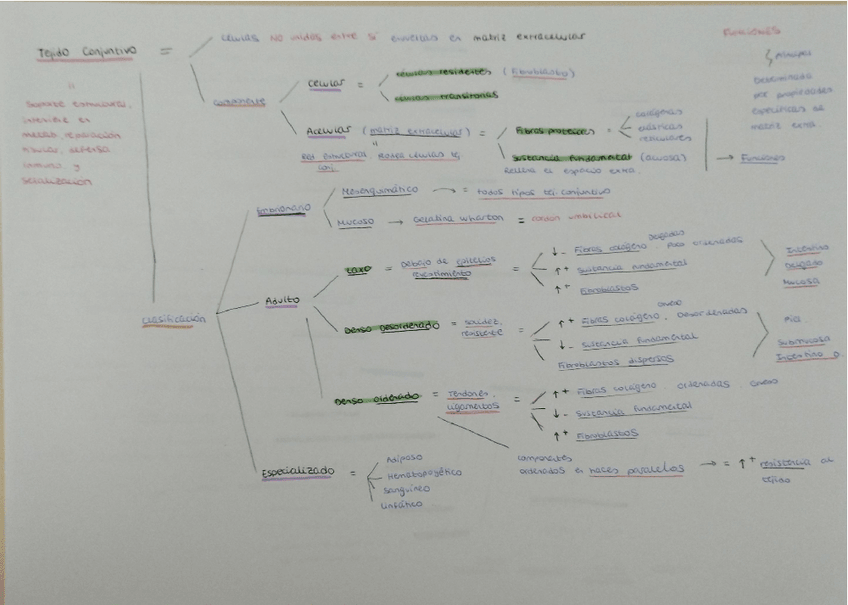 Tejido Conjuntivo =
células NO unidas entre sí envueltas en matriz extracelular
Funciones
Principal
Determinada
por propiedades
específicas de
matriz extra.
"
Soporte estructural,
intervine en
medio, reparación
tisular, defensa
inmune, y
señalización
componentes
Celular =
células residentes (Fibroblasto)
células transitorias
Acelular (matriz extracelular) =
"
Red estructural, rodea células tej
conj.
Fibras proteicas =
colágenas
elásticas
reticulares
Sustancia Fundamental (acuosa)
Rellena el espacio extra.
→ Funciones
Clasificación
Embrionario
Mesenquimático → = todos tipos tej. conjuntivo
Mucoso → Gelatina Wharton = cordón umbilical
Adulto
Laxo = Debajo de epitelios
recubrimiento =
↓- Fibras colágeno delgado. Poco ordenadas
↑+ Sustancia Fundamental
↑+ Fibroblastos
Intestino
Delgado
Mucosa
Denso Desordenado = solidez,
resistente =
↑+ Fibras colágeno grueso. Desordenadas
↓- Sustancia Fundamental
Fibroblastos dispersos
Piel
Submucosa
Intestino D.
Denso ordenado = Tendones,
Ligamentos =
↑+ Fibras colágeno ordenadas grueso
↓- Sustancia Fundamental
↑+ Fibroblastos
componentes
ordenados en haces paralelos → = ↑+ resistencia al
tejido
Especializado =
Adiposo
Hematopoyético
Sanguíneo
Linfático